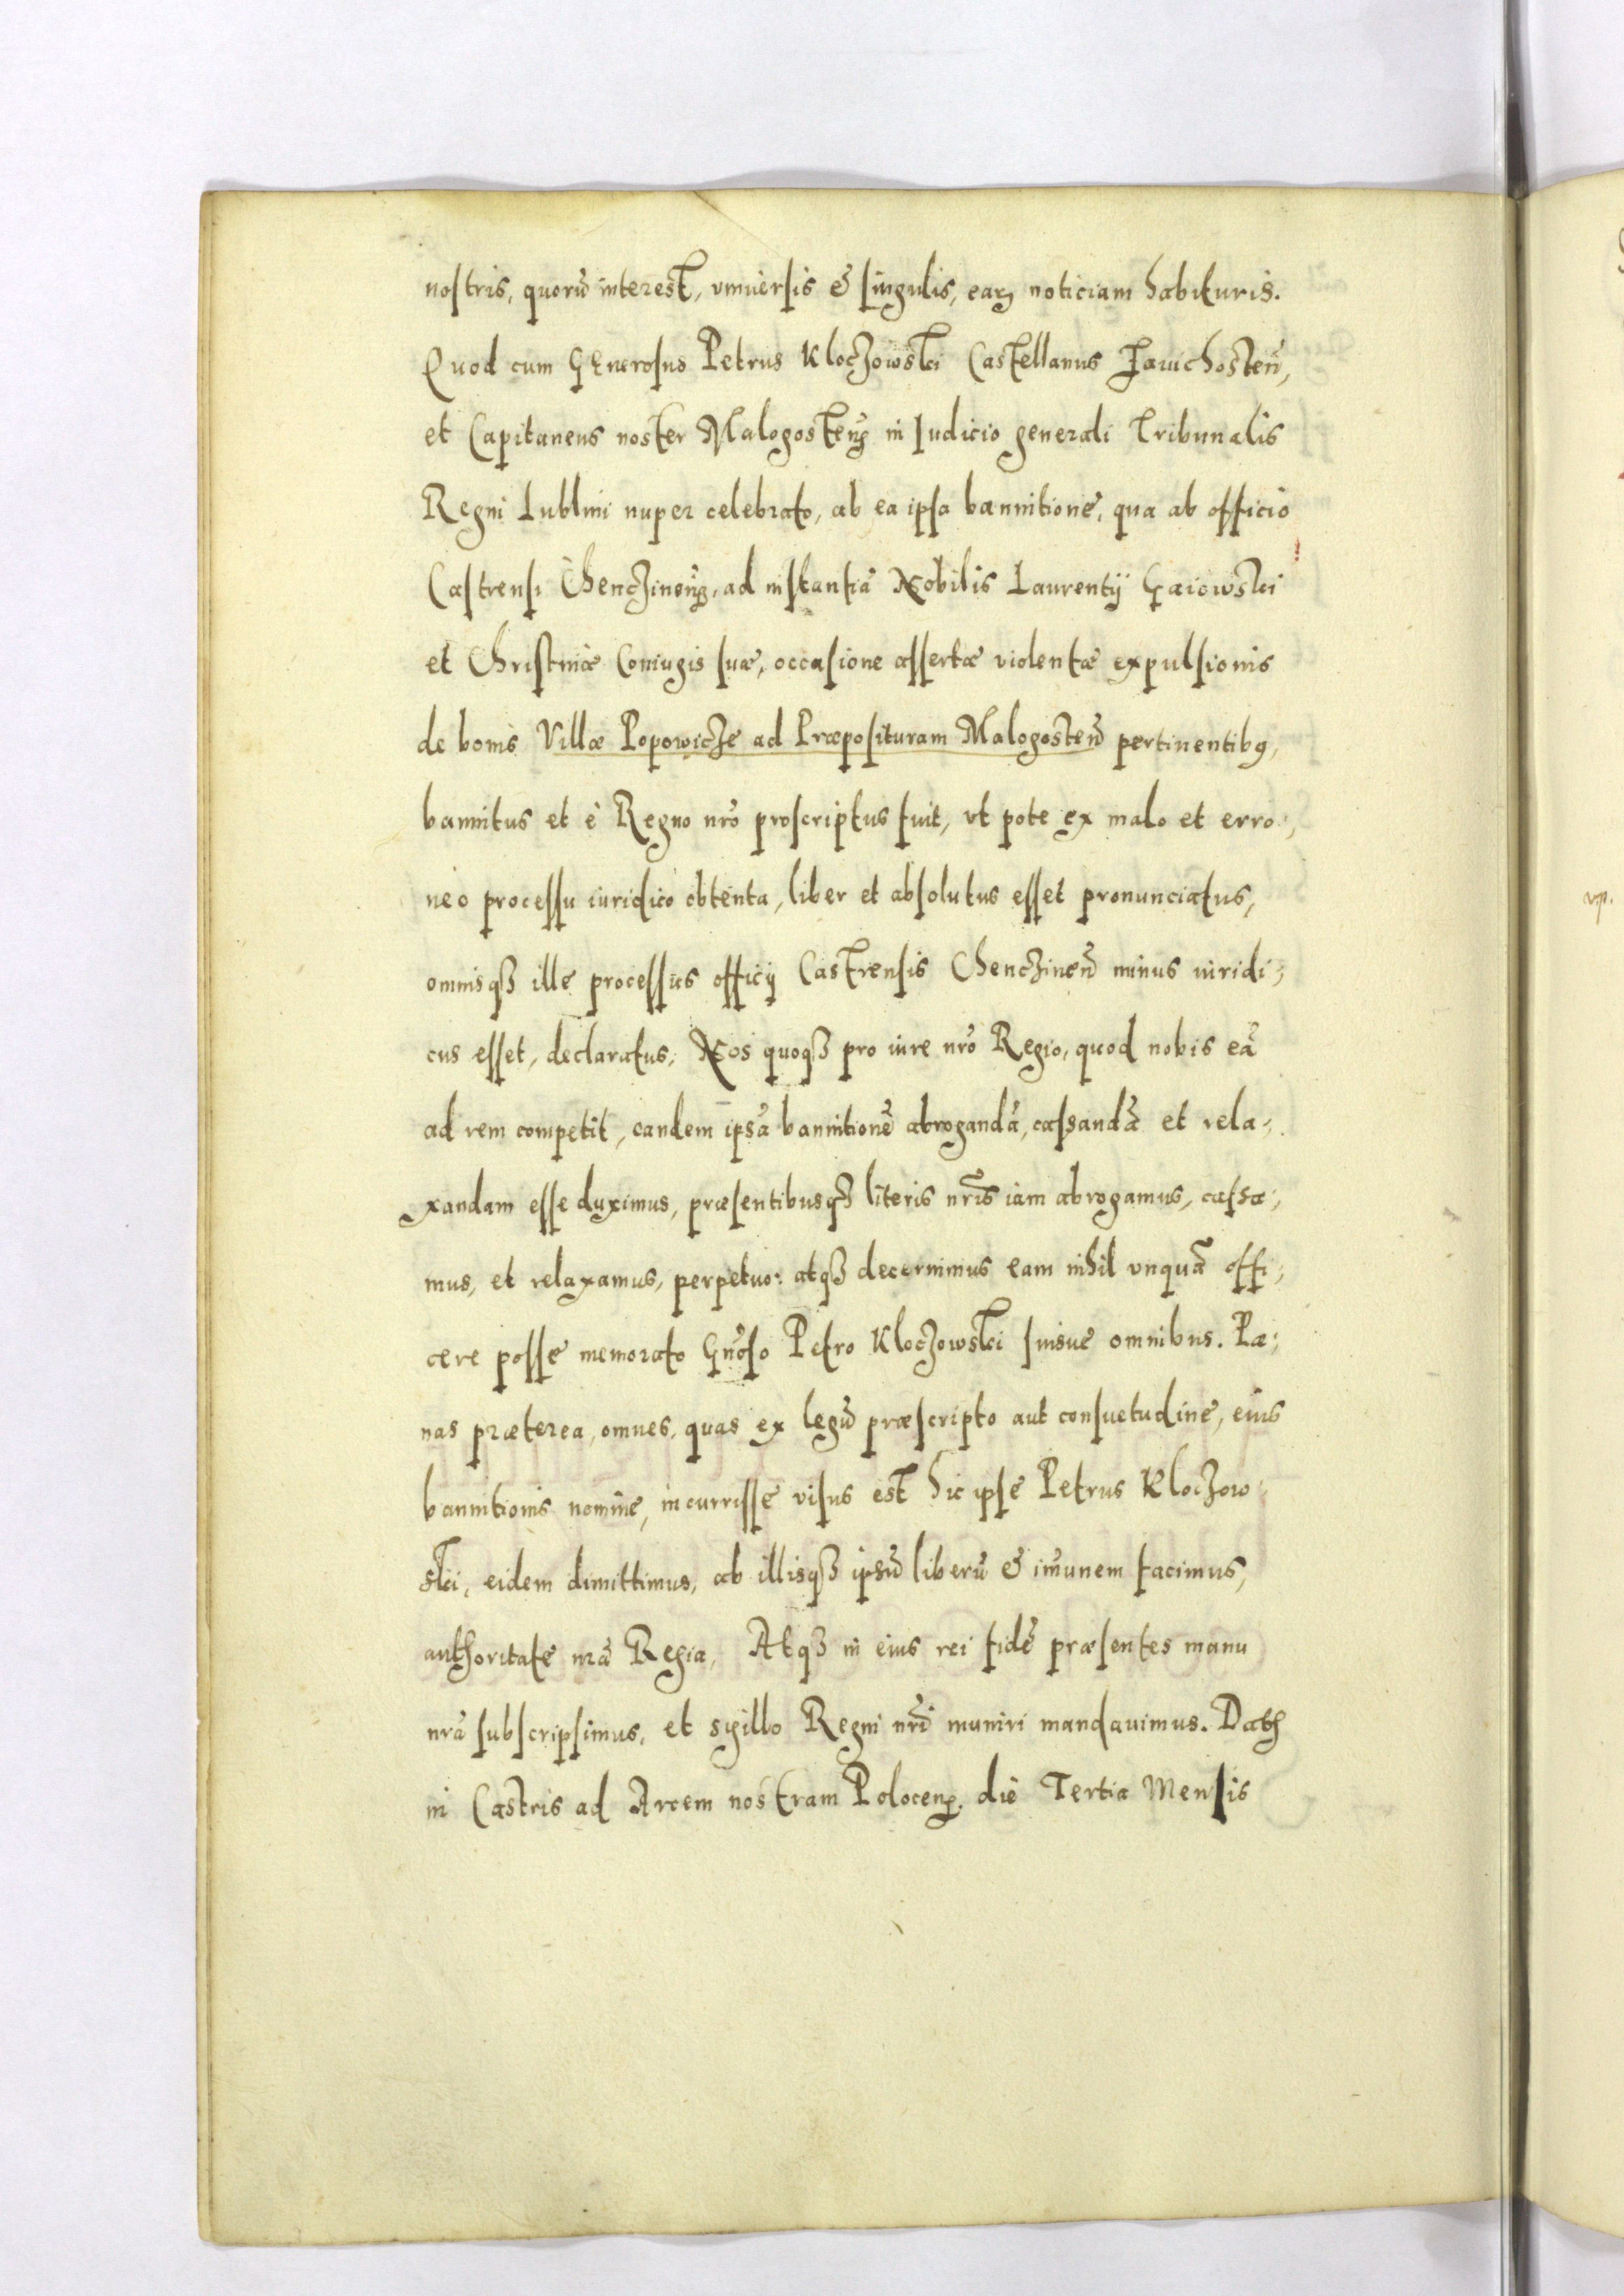 nostris, quorũ interest, vniuersis & singulis, earꝫ noticiam habituris.
Quod cum GEnerosus Petrus Kloczowski Castellanus Zawichosteñ,
et Capitaneus noster Malogosteñ in Iudicio generali Tribunalis
Regni Lublini nuper celebrato, ab ea ipsa bannitione, qua ab officio
Castrensi Chenczineñ, ad instantiã Nobilis Laurentij Gaiowski
et Christinæ Coniugis suæ, occasione assertæ violentæ expulsionis
de bonis Villæ Popowicze ad Præposituram Malogosteñ pertinentibꝰ,
bannitus et è Regno nr̃o proscriptus fuit, vt pote ex malo et erro-,
neo processu iuridico obtenta, liber et absolutus esset pronunciatus,
omnisqꝫ ille processus officij Castrensis Chenczineñ minus iuridi-,
cus esset, declaratus, Nos quoqꝫ pro iure nr̃o Regio, quod nobis eã
ad rem competit, eandem ipsã bannitionẽ abrogandã, cassandã et rela-,
xandam esse duximus, præsentibusqꝫ literis nr̃is iam abrogamus, cassa-,
mus, et relaxamus, perpetuo: atqꝫ decernimus eam nihil vnquã offi-,
cere posse memorato Gnõso Petro Kloczowski suisue omnibus. Pæ-,
nas præterea, omnes, quas ex legũ præscripto aut consuetudine, eius
bannitionis nomine, incurrisse visus est hic ipse Petrus Kloczow-
ski, eidem dimittimus, ab illisqꝫ ipsũ liberũ & im̃unem facimus,
authoritate nr̃a Regia, Atqꝫ in eius rei fidẽ præsentes manu
nr̃a subscripsimus, et sigillo Regni nr̃i muniri mandauimus. Datꝫ
in Castris ad Arcem nostram Poloceñ. die Tertia Mensis